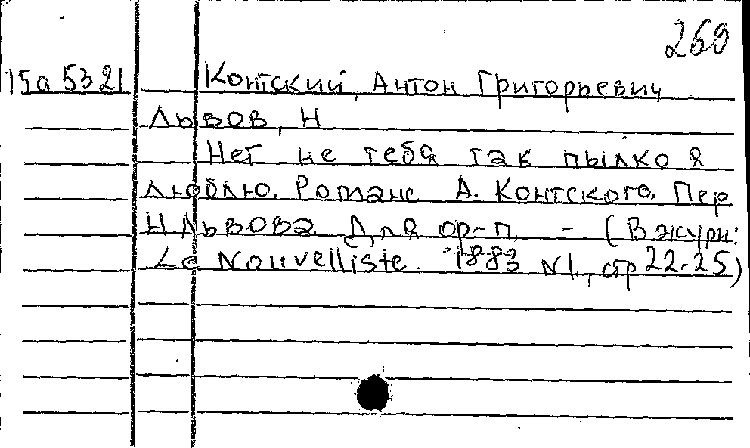 269
15a 5321 Контский, Антон Григорьевич
Львов, Н
Нет не тебя так пылко я
люблю. Романс А. Контского. Пер
Н Львова Для ор-п - (В журн:
Le Nouvelliste 1883 N1, стр 22-25)